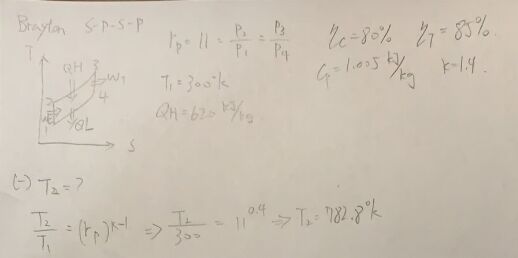 Brayton S-P-S-P
rp = 11 = P2/P1 = P3/P4
ηc = 80% ηT = 85%
T1 = 300°k
Cp = 1.005 kJ/kg k = 1.4.
QH = 620 kJ/kg
T
QH 3
WT
2
4
1 QL
S
(-) T2 = ?
T2/T1 = (rp)^k-1 => T2/300 = 11^0.4 => T2 = 782.8°k